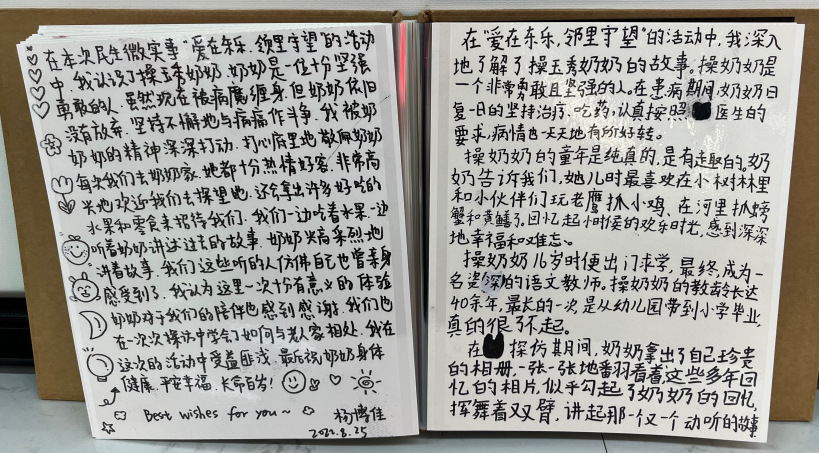 在本次民生微实事"爱在东乐，邻里守望"的活动
中，我认识了操玉秀奶奶，奶奶是一位十分坚强
勇敢的人。虽然现在被病魔缠身，但奶奶依旧
没有放弃，坚持不懈地与病痛作斗争，我被奶
奶奶的精神深深打动，打心底里地敬佩奶奶
每次我们去奶奶家，她都十分热情好客，非常高
兴地欢迎我们去探望她，还会拿出许多好吃的
水果和零食来招待我们，我们一边吃着水果，一边
听着奶奶讲述过去的故事，奶奶兴高采烈地
讲着故事，我们这些听的人仿佛自己也曾亲身
感受到了，我认为这里一次十分有意义的体验
奶奶对于我们的陪伴也感到感谢，我们也
在一次次探访中学会了如何与老人家相处，我在
这次的活动中受益匪浅，最后祝奶奶身体
健康，平安幸福，长命百岁！
Best wishes for you~
杨博佳
2022.8.25
在"爱在东乐，邻里守望"的活动中，我深入
地了解了操玉秀奶奶的故事。操奶奶是
一个非常勇敢且坚强的人。在患病期间，奶奶日
复一日的坚持治疗、吃药，认真按照医生的
要求，病情也一天天地有所好转。
操奶奶的童年是纯真的，是有趣的。奶
奶告诉我们，她儿时最喜欢在小树林里
和小伙伴们玩老鹰抓小鸡、在河里抓螃
蟹和黄鳝了。回忆起小时候的欢乐时光，感到深深
地幸福和难忘。
操奶奶16岁时便出门求学，最终，成为一
名资深的语文教师。操奶奶的教龄长达
40余年，最长的一次，是从幼儿园带到小学毕业，
真的很了不起。
在探访期间，奶奶拿出了自己珍贵
的相册，一张一张地翻看着这些多年回
忆的相片，似乎勾起了奶奶的回忆，
挥舞着双臂，讲起那一个又一个动听的故事